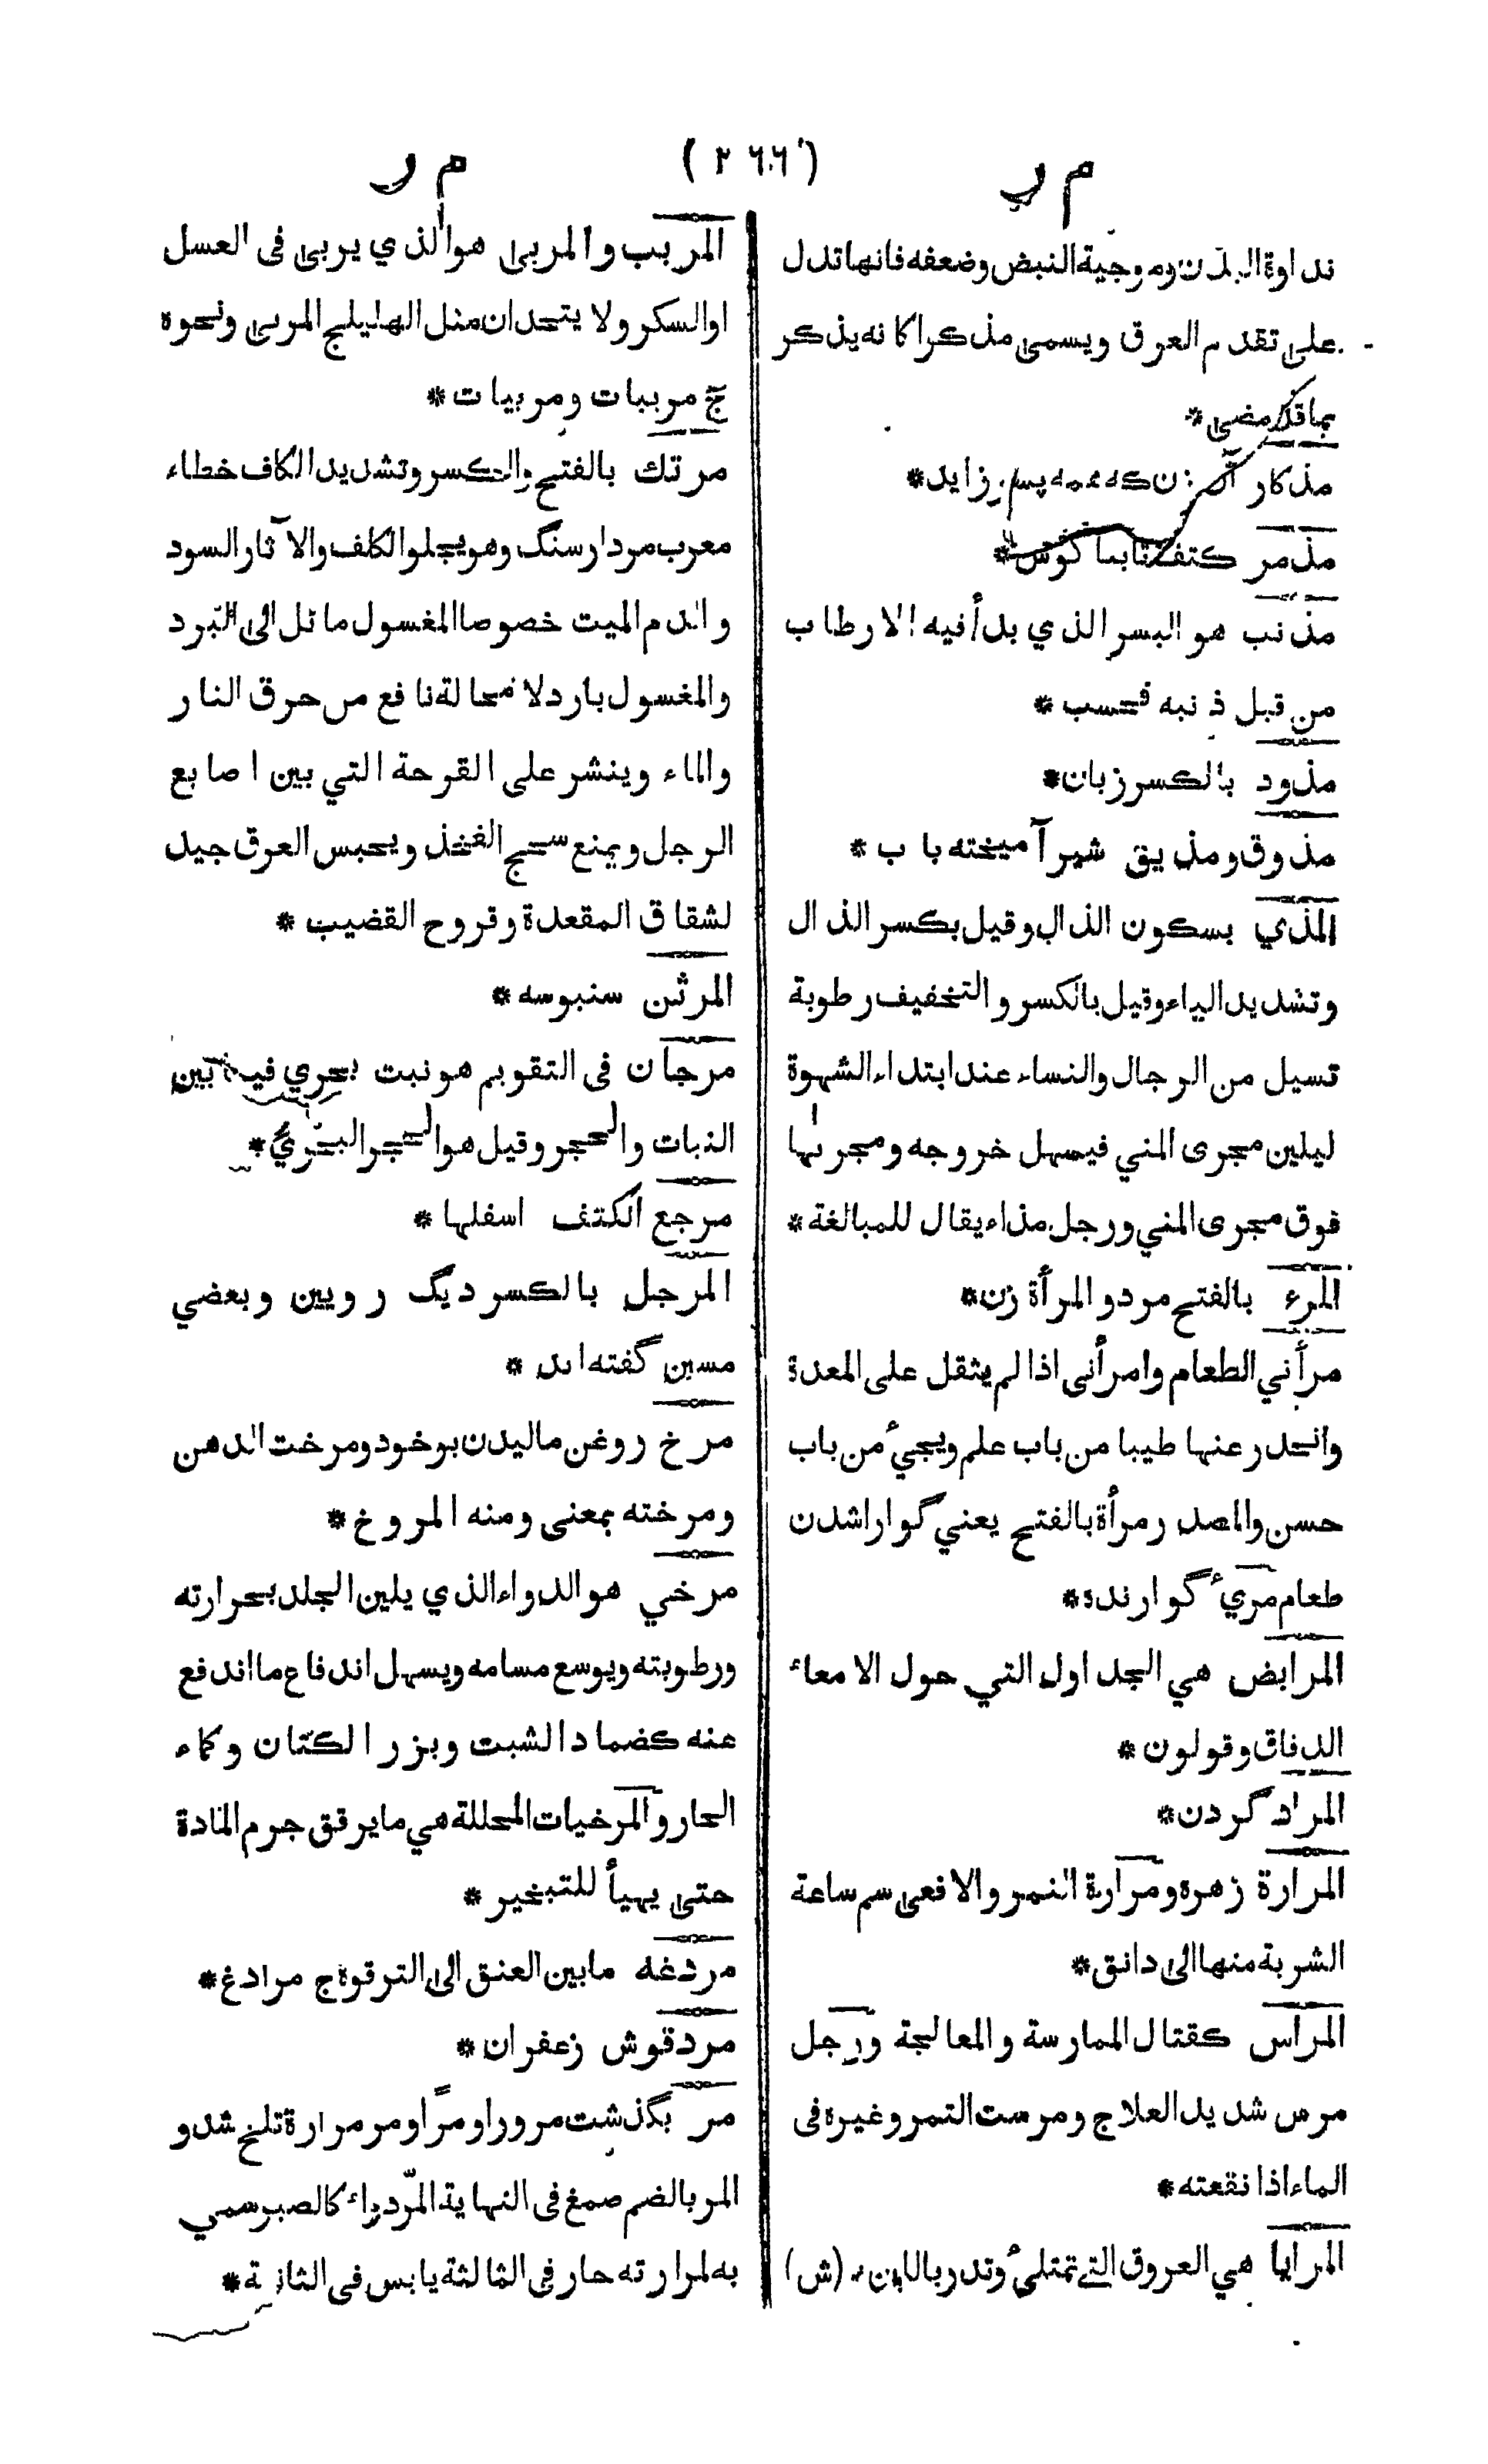 م ر
( ٢٦٦ )
م ر
نداوة البدن وموجية النبض وضعفه فانها تدل
على تقدم العرق ويسمى مذكرا كانه يذكر
بما قد مضى *
مذكار آن زن كه همه پسر زايد *
مذمر كتف تا بنا گوش *
مذنب هو البسر الذي بدأ فيه الارطاب
من قبل ذنبه فحسب *
مذود بالكسر زبان *
مذوق ومذيق شير آميخته باب *
المذي بسكون الذال وقيل بكسر الذال
وتشديد الياء وقيل بالكسر والتخفيف رطوبة
تسيل من الرجال والنساء عند ابتداء الشهوة
ليلين مجرى المني فيسهل خروجه ومجرىها
فوق مجرى المني ورجل مذاء يقال للمبالغة *
المرء بالفتح مرد والمرأة زن *
مرأني الطعام وامرأنى اذا لم يثقل على المعدة
وانحدر عنها طيبا من باب علم ويجئ من باب
حسن والمصدر مرأة بالفتح يعني گوارا شدن
طعام مرئ گوارنده *
المرابض هي الجداول التي حول الامعاء
الدقاق وقولون *
المراد گردن *
المرارة زهره ومرارة النمر والافعى سم ساعة
الشربة منها الى دانق *
المراس كقتال الممارسة والمعالجة ورجل
مرس شديد العلاج ومرست التمر وغيره فى
الماء اذا نقعته *
المرايا هي العروق التي تمتلئ وتدر باللبن * (ش)
المربب والمربى هو الذي يربى فى العسل
اوالسكر ولا يتحدان مثل الهليلج المربى ونحوه
ج مرببات ومربيات *
مرتك بالفتح والكسر وتشديد الكاف خطاء
معرب مردارسنگ وهو يجلوا الكلف والآثار السود
والدم الميت خصوصا المغسول مائل الى التبرد
والمغسول بارد لا محالة نافع من حرق النار
والماء وينشر على القرحة التي بين اصابع
الرجل ويمنع سحج الفخذ ويحبس العرق جيد
لشقاق المقعدة وقروح القضيب *
المرثن سنبوسه *
مرجان فى التقويم هو نبت بحري فيما بين
النبات والحجر وقيل هو الحجر البحري *
مرجع الكتف اسفلها *
المرجل بالكسر ديگ رويين وبعضي
مسين گفته اند *
مرخ روغن ماليدن بر خود ومرخت الدهن
ومرخته بمعنى ومنه المروخ *
مرخي هو الدواء الذي يلين الجلد بحرارته
ورطوبته ويوسع مسامه ويسهل اندفاع ما اندفع
عنه كضماد الشبت وبزر الكتان وكماء
الحار والمرخيات المحللة هي ما يرقق جرم المادة
حتى يهيأ للتبخير *
مردغه مابين العنق الى الترقوة ج مرادغ *
مردقوش زعفران *
مر بگذشت مرورا ومرًا ومر مرارة تلخ شد و
المر بالضم صمغ فى النهاية المرّ دواء كالصبر سمي
به لمرارته حار فى الثالثة يابس فى الثانية *